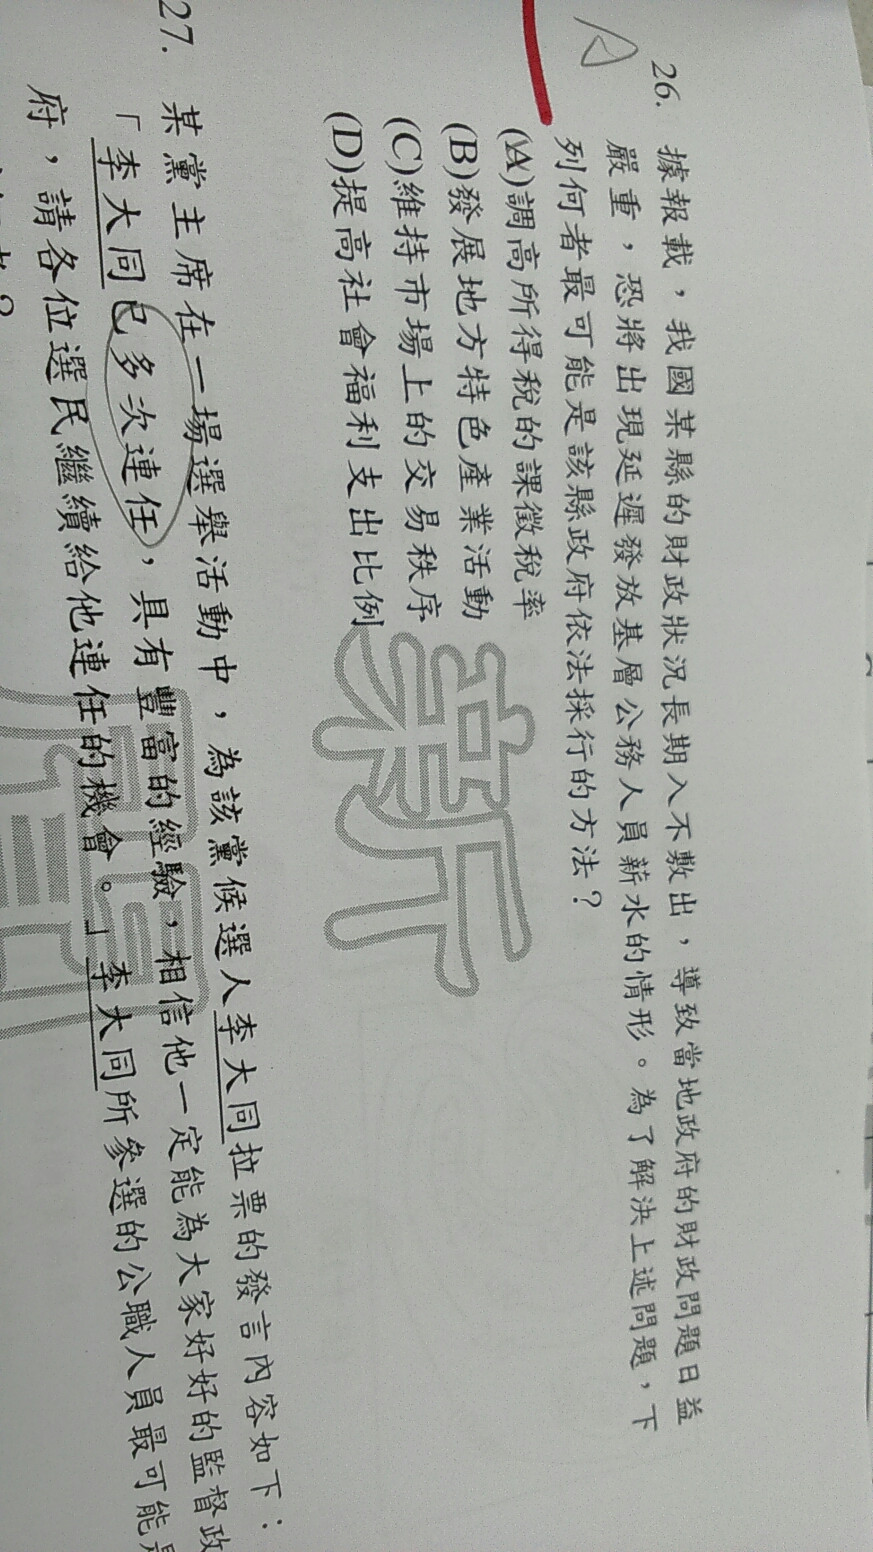 A
26. 據報載，我國某縣的財政狀況長期入不敷出，導致當地政府的財政問題日益
嚴重，恐將出現延遲發放基層公務人員薪水的情形。為了解決上述問題，下
列何者最可能是該縣政府依法採行的方法？
(A)調高所得稅的課徵稅率
(B)發展地方特色產業活動
(C)維持市場上的交易秩序
(D)提高社會福利支出比例
新
27. 某黨主席在一場選舉活動中，為該黨候選人李大同拉票的發言內容如下：
「李大同已多次連任，具有豐富的經驗，相信他一定能為大家好好的監督政
府，請各位選民繼續給他連任的機會。」李大同所參選的公職人員最可能是
？